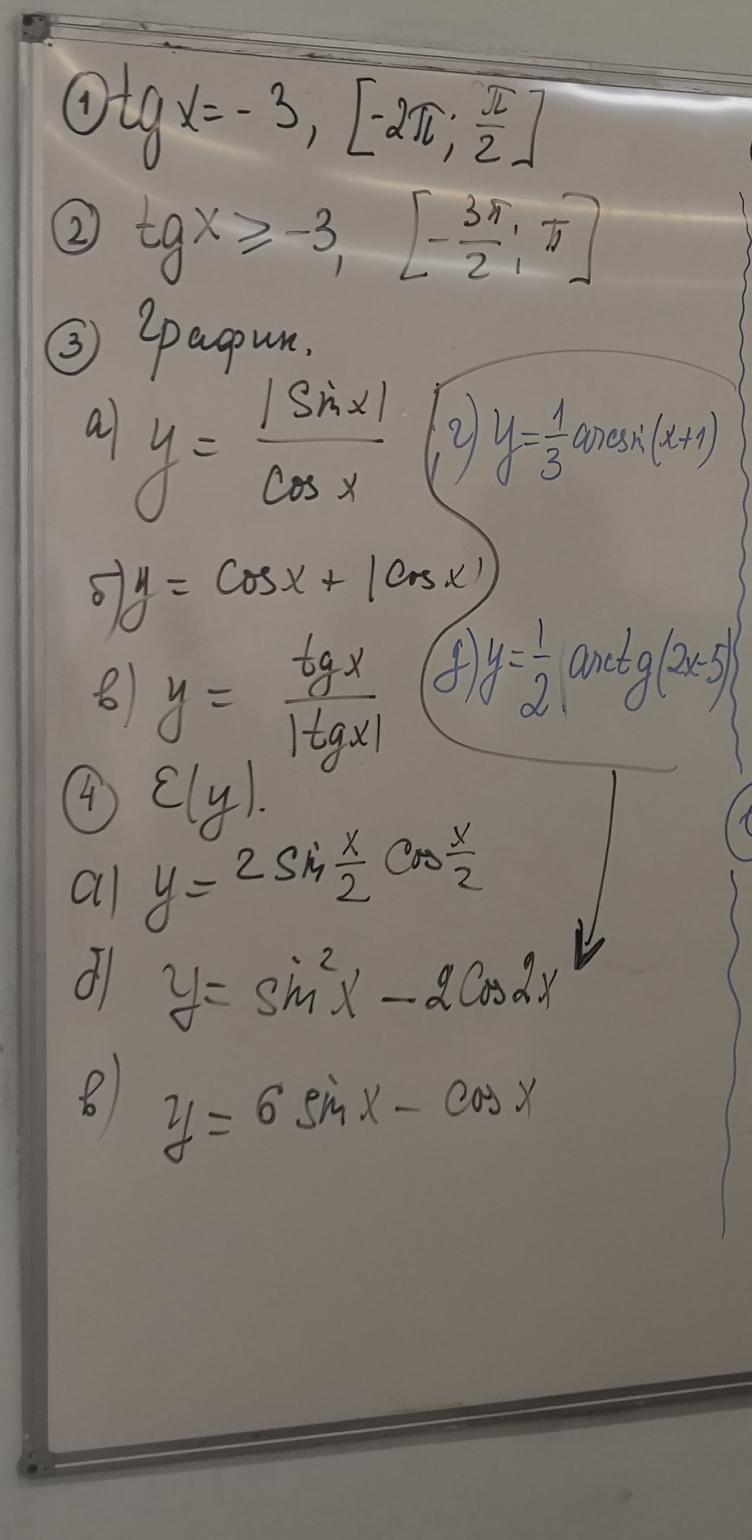 ① tg x = - 3, [-2π; π/2]
② tg x ⩾ -3, [-3π/2; π]
③ График.
а) y = |Sin x| / Cos x
г) y = 1/3 arcsin(x+1)
б) y = Cos x + |Cos x|
в) y = tg x / |tg x|
д) y = 1/2 arctg(2x-5)
④ E(y).
а) y = 2 Sin x/2 Cos x/2
б) y = sin²x - 2Cos2x
в) y = 6 sin x - cos x